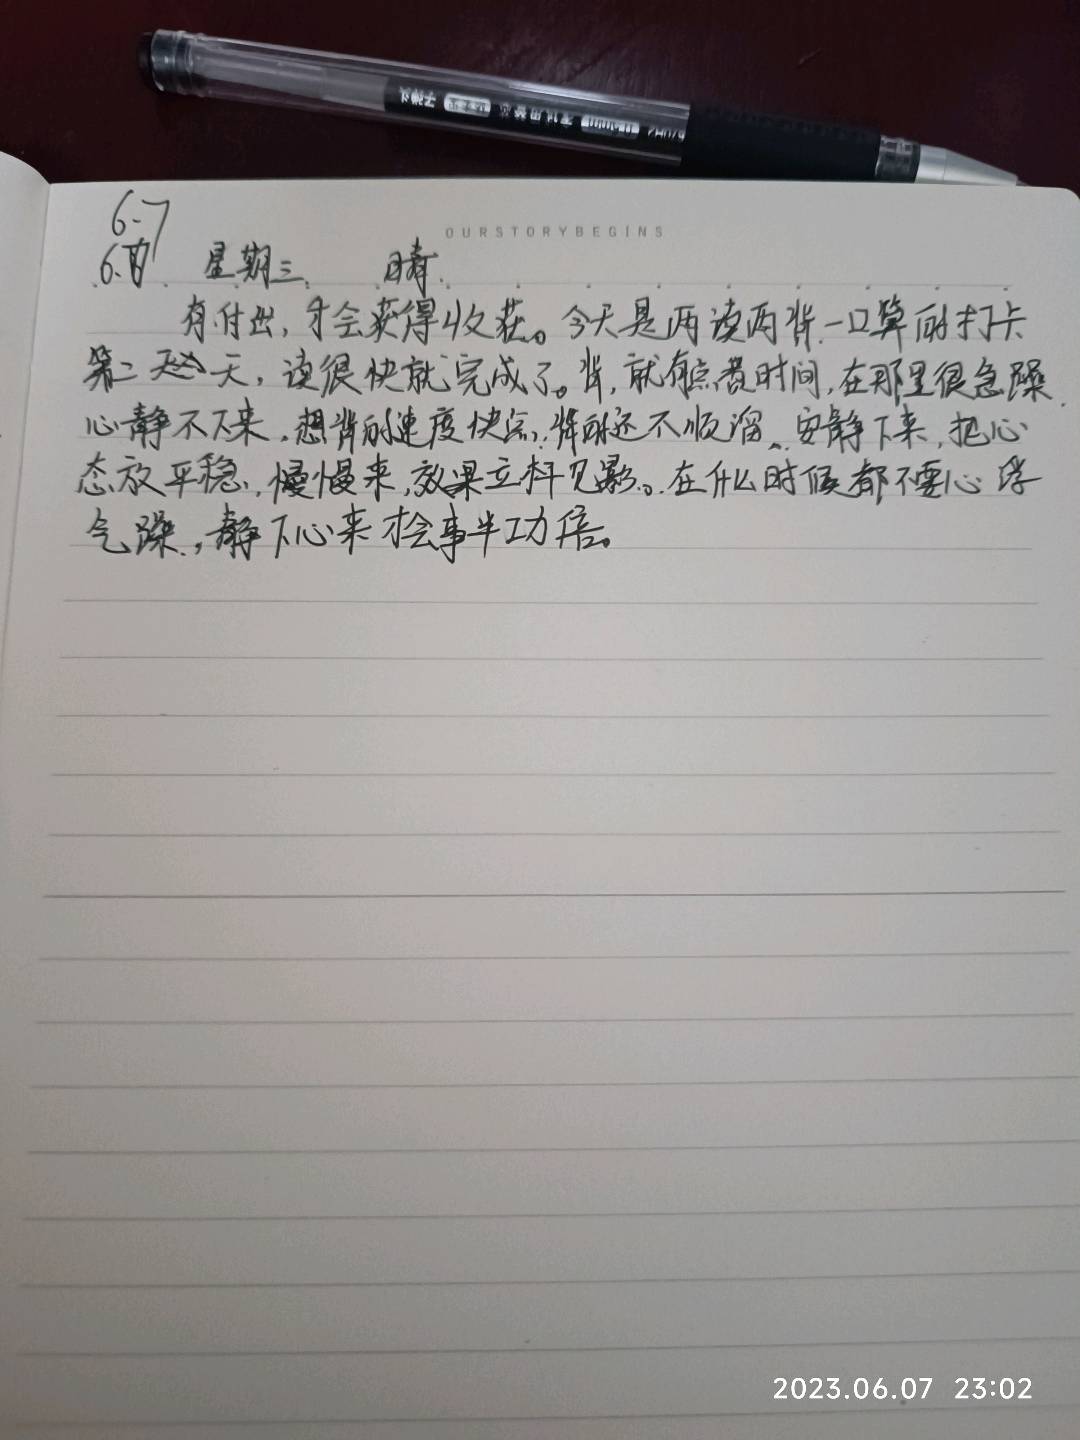 OURSTORYBEGINS
6.7
6. 星期三 晴
有付出，才会获得收获。今天是两读两背一口算的打卡
第二天，读很快就完成了。背，就有点费时间，在那里很急躁
心静不下来，想背的速度快点，背的还不顺溜、安静下来，把心
态放平稳，慢慢来，效果立杆见影。在什么时候都不要心浮
气躁，静下心来才会事半功倍。
2023.06.07 23:02